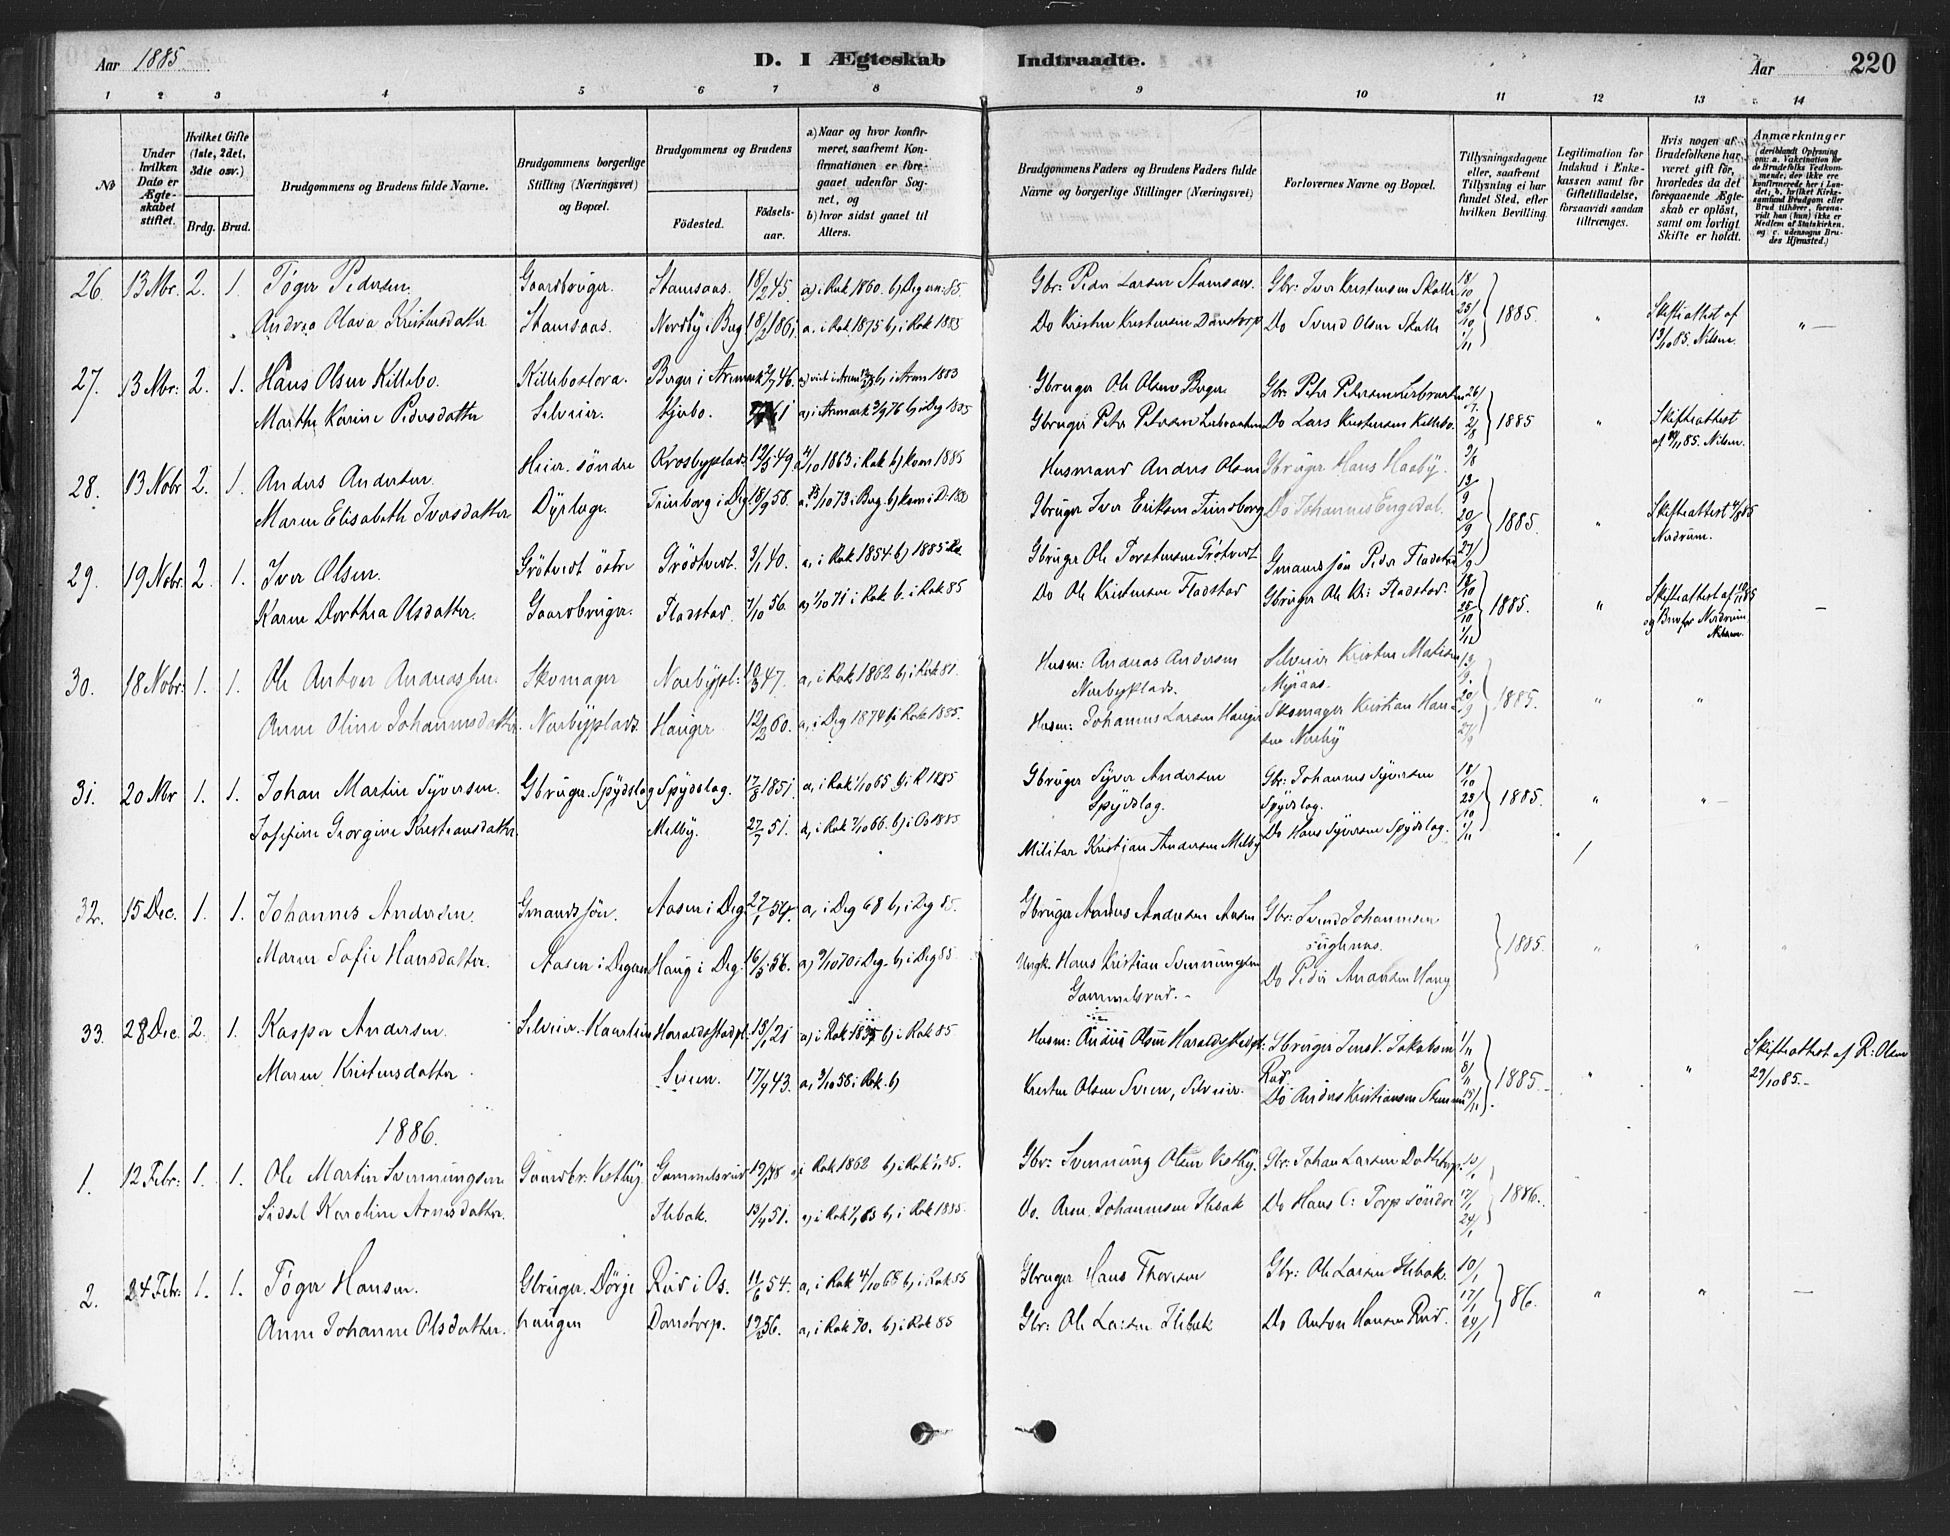 Aar 1885
D. I Ægteskab Indtraadte.
Aar
220
1 2 3 4 5 6 7 8 9 10 11 12 13 14
No
Under hvilken Dato er Ægteskabet stiftet.
Hvilket Gifte (1ste, 2det, 3die osv.)
Brdg. Brud.
Brudgommens og Brudens fulde Navne.
Brudgommens borgerlige Stilling (Næringsvei) og Bopæl.
Brudgommens og Brudens
Födested. Födsels-aar.
a) Naar og hvor konfirmeret, saafremt Konfirmationen er foregaaet udenfor Sognet, og
b) hvor sidst gaaet til Alters.
Brudgommens Faders og Brudens Faders fulde Navne og borgerlige Stillinger (Næringsvei)
Forlovernes Navne og Bopæl.
Tillysningsdagene eller, saafremt Tillysning ei har fundet Sted, efter hvilken Bevilling.
Legitimation for Indskud i Enkekassen samt for Giftetilladelse, forsaavidt saadan tiltrænges.
Hvis nogen af Brudefolkene har været gift för, hvorledes da det foregaaende Ægteskab er oplöst, samt om lovligt Skifte er holdt.
Anmærkninger
26. 13 Nbr. 2. 1. Töger Pedersen. Gaardbruger. Stamsaas. 18/2 45. a) i Rak 1860. b) Degern: 85. Gbr: Peder Larsen Stamsaas. Gbr: Iver Kristensen Skolle 18/10
Andrea Olava Kristensdatter Stamsaas. Nordby i Berg a. i Rak 1875 b, i Rak 1885 Do Kristen Kristensen Danstorp Do Svend Olsen Skolle 25/10 1/11 1885. " Skifteattest af 13/10 85. Nilsen. "
27. 13 Nbr: 2. 1. Hans Olsen Killebo. Killeboslora. Berger i Aremark 46. b, i Arem 1883 Gbruger Ole Olsen Berger Gbr: Peter Petersen 26/7
Marthe Karine Pedersdatter Selveier. a) i Aremark 76 b) i Deg 1885 Gbruger Peter Petersen Do Lars Kristensen Killebo. 2/8 9/8 1885 " Skifteattest af 85. Nilsen.
28. 13 Nobr 2. 1. Anders Andersen. Heier söndre Krosbyplads 12/3 49 1863 i Rak b) kom 1885 Husmand Anders Olsen Gbruger Hans Haaby. 13/9
Maren Elisabeth Iversdatter Dyrlæge. Tinsborg i Deg 18/9 58. 73 i Berg. Gbruger Iver Eriksen Tinsborg Do Johannes Engedal. 20/9 27/9 1885. " Skifteattest 85 Nordrum.
29. 19 Nobr. 2. 1. Iver Olsen. Grötvedt östre Grödtvedt. 3/1 40. a, i Rak 1854 b) 1885 Gbruger Ole Torstensen Grötvedt. Gmandssön Peder Fladstad 18/10
Karen Dorthea Olsdatter. Gaardbruger. Fladstad. 7/10 56. a) 71 i Rak. b. i Rak 85 Do Ole Kristensen Fladstad Gbruger Ole Kr: Fladstad. 25/10 1885. " Skifteattest af 85 og Nordrum Nilsen. —
30. 18 Nobr: 1. 1. Ole Anton Andreassen. Skomager Norbypl: 47. a, i Rak 1862 b, i Rak 81. Husm: Andreas Andersen Norbyplads. Selveier Kristen Matisen Myraas. 13/9
Anne Oline Johannesdatter. Norbyplads. Hauger 12/2 60. a, i Deg 1874 b, i Rak 1885. Husm: Johannes Larsen Hauger Skomager Kristian Hansen Norby 20/9 27/9 1885. " "
31. 20 Nbr 1. 1. Johan Martin Syversen. Gbruger. Spydslag Spydslag. 17/8 1851. a, i Rak 1/10 65 b) i R 1885 Gbruger Syver Andersen Spydslag. Gbr: Johannes Syversen Spydslag. 18/10
Josefine Georgine Kristiansdatter. Melby. 27/7 51. a, i Rak 7/10 66. b) i Os 1885 Militær Kristian Andersen Melby Do Hans Syversen Spydslag. 1/11 1885. " "
32. 15 Dec. 1. 1. Johannes Andersen. Gmandssön. Aasen i Deg. 27/1 54. a, i Deg 68 b, i Deg 85. Gbruger Anders Andersen Aasen Gbr: Svend Johannesen
Maren Sofie Hansdatter. Aasen i Degern Haug i Deg. 16/5 56. a) 70 i Deg. b) i Deg 85 Ungk. Hans Kristian Svenningsen Gammelsrud. Do Peder Andersen Haug 1885. " " "
33. 28 Dec. 2. 1. Kasper Andersen. Selveier. Haraldsstadpl. 13/1 21 a) i Rak b) i Rak 85 Husm: Anders Olsen Haraldsstadpl: Gbruger Jens V. Jakobsen Rud. 1/11
Maren Kristensdatter. Sveen. 17/7 43. a, 3/10 58 i Rak. b) Kresten Olsen Sveen, Selveier. Do Anders Kristiansen 8/11 15/11 1885. " " Skifteattest af R: Olsen 29/10 85.
1886.
1. 12 Febr: 1. 1. Ole Martin Svenningsen Gaardbr: Vestby. Gammelsrud i Rak 1862 b) i Rak 85. Gbr: Svenning Olsen Vestby. Gbr: Johan Larsen
Sidsel Karoline Arnesdatter. Ilebak. 13/4 51. a) i Rak 65 b, i Rak 1885. Do. Arne Johannesen Ilebak Do Hans C: Torp söndre 17/1 24/1 1886.
2. 24 Febr: 1. 1. Töger Hansen. Gbruger. Dörje Rud i Os. 11/6 54. a, i Rak 4/10 68 b, i Rak 85 Gbruger Hans Thoresen Gbr: Ole Larsen Ilebak. 10/1
Anne Johanne Olsdatter. haugen Danstorp. 56. a, i Rak 70. b) i Rak 85 Gbr: Ole Larsen Ilebak Do Anton Hansen Rud. 17/1 24/1 86. " " —